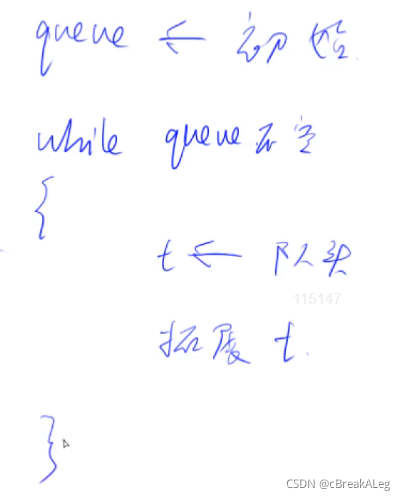 queue ← 初始
while queue不空
{
t ← 队头
115147
拓展 t
}
CSDN @cBreakALeg